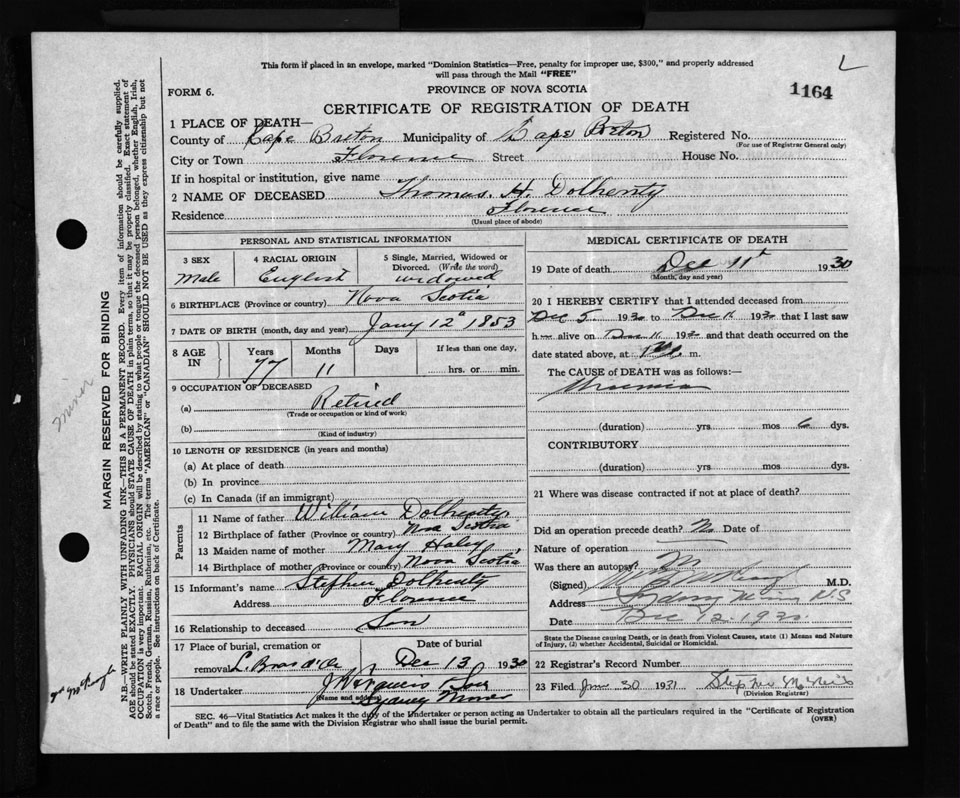 This form if placed in an envelope, marked "Dominion Statistics—Free, penalty for improper use, $300," and properly addressed
will pass through the Mail "FREE"
L
1164
FORM 6.
PROVINCE OF NOVA SCOTIA
CERTIFICATE OF REGISTRATION OF DEATH
1 PLACE OF DEATH—
County of Cape Breton Municipality of Cape Breton Registered No.
(For use of Registrar General only)
City or Town Florence Street House No.
If in hospital or institution, give name
2 NAME OF DECEASED Thomas. H. Dolhenty
Residence Florence
(Usual place of abode)
PERSONAL AND STATISTICAL INFORMATION
3 SEX 4 RACIAL ORIGIN 5 Single, Married, Widowed or
Divorced. (Write the word)
Male English widowed
6 BIRTHPLACE (Province or country) Nova Scotia
7 DATE OF BIRTH (month, day and year) Jany 12 1853
8 AGE IN Years Months Days If less than one day,
77 11 hrs. or min.
9 OCCUPATION OF DECEASED
(a) Retired
(Trade or occupation or kind of work)
(b)
(Kind of industry)
10 LENGTH OF RESIDENCE (in years and months)
(a) At place of death
(b) In province
(c) In Canada (if an immigrant)
Parents
11 Name of father William Dolhenty
12 Birthplace of father (Province or country) Nova Scotia
13 Maiden name of mother Mary Haley
14 Birthplace of mother (Province or country) Nova Scotia
15 Informant's name Stephen Dolhenty
Address Florence
16 Relationship to deceased Son
17 Place of burial, cremation or Date of burial
removal L. Bras d'Or Dec 13 1930
18 Undertaker
(Name and address) Sydney Mines
MEDICAL CERTIFICATE OF DEATH
19 Date of death Dec 11 1930
(Month, day and year)
20 I HEREBY CERTIFY that I attended deceased from
Dec 5 1930 to Dec 11 1930 that I last saw
h alive on Dec 11 1930 and that death occurred on
date stated above, at m.
The CAUSE of DEATH was as follows:—
Uraemia
(duration) yrs. mos 6 dys.
CONTRIBUTORY
(duration) yrs. mos. dys.
21 Where was disease contracted if not at place of death?
Did an operation precede death? No Date of
Nature of operation
Was there an autopsy? No
(Signed) M.D.
Address Sydney Mines N.S
Date Dec 12. 1930.
State the Disease causing Death, or in death from Violent Causes, state (1) Means and Nature
of Injury, (2) whether Accidental, Suicidal or Homicidal.
22 Registrar's Record Number
23 Filed Jan 30 1931
(Division Registrar)
SEC. 46—Vital Statistics Act makes it the duty of the Undertaker or person acting as Undertaker to obtain all the particulars required in the "Certificate of Registration
of Death" and to file the same with the Division Registrar who shall issue the burial permit. (OVER)
miner
MARGIN RESERVED FOR BINDING
N.B.—WRITE PLAINLY WITH UNFADING INK—THIS IS A PERMANENT RECORD. Every item of information should be carefully supplied.
AGE should be stated EXACTLY. PHYSICIANS should STATE CAUSE OF DEATH in plain terms, so that it may be properly classified. Exact statement of
OCCUPATION is very important. RACIAL ORIGIN will be described by stating to what people or tongue the deceased person belonged, whether English, Irish,
Scotch, French, German, Russian, Ruthenian, etc. The terms "AMERICAN" or "CANADIAN" SHOULD NOT BE USED as they express citizenship but not
a race or people. See instructions on back of Certificate.